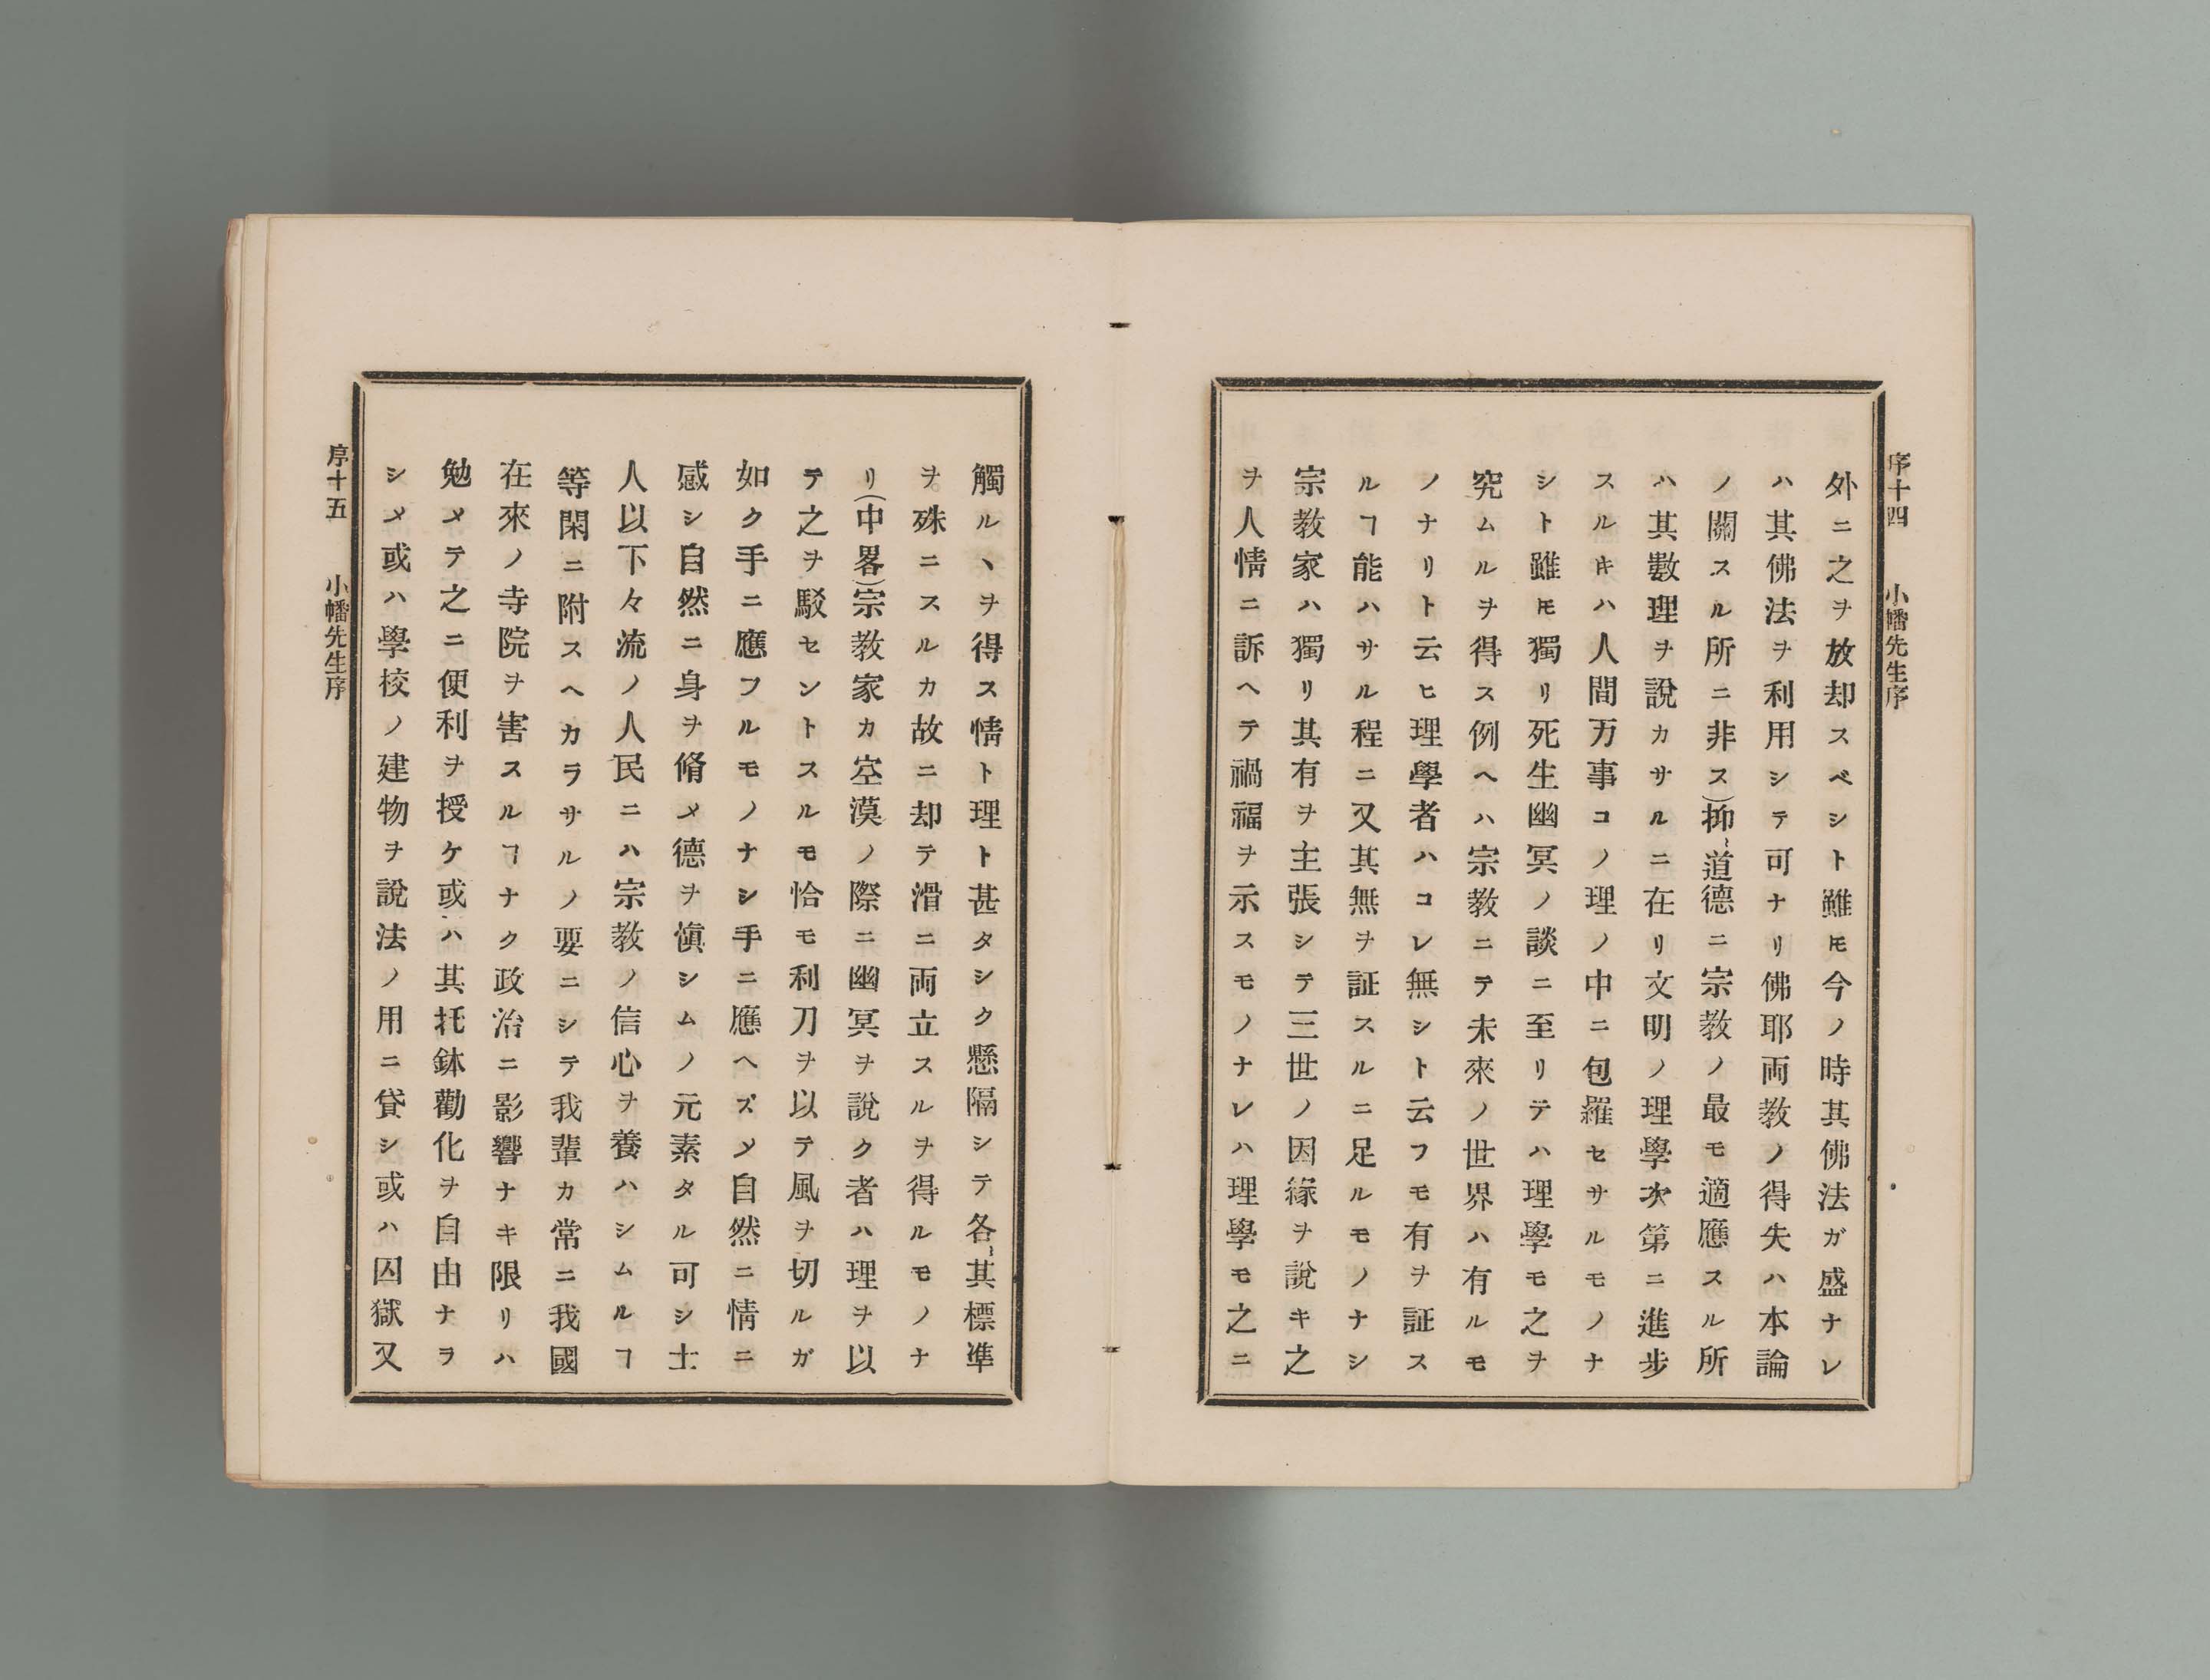 序十四　小幡先生序
外ニ之ヲ放却スベシト雖𪜈今ノ時其佛法ガ盛ナレ
ハ其佛法ヲ利用シテ可ナリ佛耶両教ノ得失ハ本論
ノ關スル所ニ非ス）抑〻道德ニ宗教ノ最モ適應スル所
ハ其數理ヲ說カサルニ在リ文明ノ理學次第ニ進步
スルキハ人間万事コノ理ノ中ニ包羅セサルモノナ
シト雖𪜈獨リ死生幽冥ノ談ニ至リテハ理學モ之ヲ
究ムルヲ得ス例ヘハ宗教ニテ未來ノ世界ハ有ルモ
ノナリト云ヒ理學者ハコレ無シト云フモ有ヲ証ス
ルヿ能ハサル程ニ又其無ヲ証スルニ足ルモノナシ
宗教家ハ獨リ其有ヲ主張シテ三世ノ因緣ヲ說キ之
ヲ人情ニ訴ヘテ禍福ヲ示スモノナレハ理學モ之ニ
觸ルヽヲ得ス情ト理ト甚タシク懸隔シテ各〻其標準
ヲ殊ニスルカ故ニ却テ滑ニ両立スルヲ得ルモノナ
リ（中畧）宗教家カ空漠ノ際ニ幽冥ヲ說ク者ハ理ヲ以
テ之ヲ駁セントスルモ恰モ利刀ヲ以テ風ヲ切ルガ
如ク手ニ應フルモノナシ手ニ應ヘズメ自然ニ情ニ
感シ自然ニ身ヲ脩メ德ヲ愼シムノ元素タル可シ士
人以下下々流ノ人民ニハ宗教ノ信心ヲ養ハシムルヿ
等閑ニ附スヘカラサルノ要ニシテ我輩カ常ニ我國
在來ノ寺院ヲ害スルヿナク政治ニ影響ナキ限リハ
勉メテ之ニ便利ヲ授ケ或ハ其托鉢勸化ヲ自由ナラ
シメ或ハ學校ノ建物ヲ說法ノ用ニ貸シ或ハ囚獄又
序十五　小幡先生序